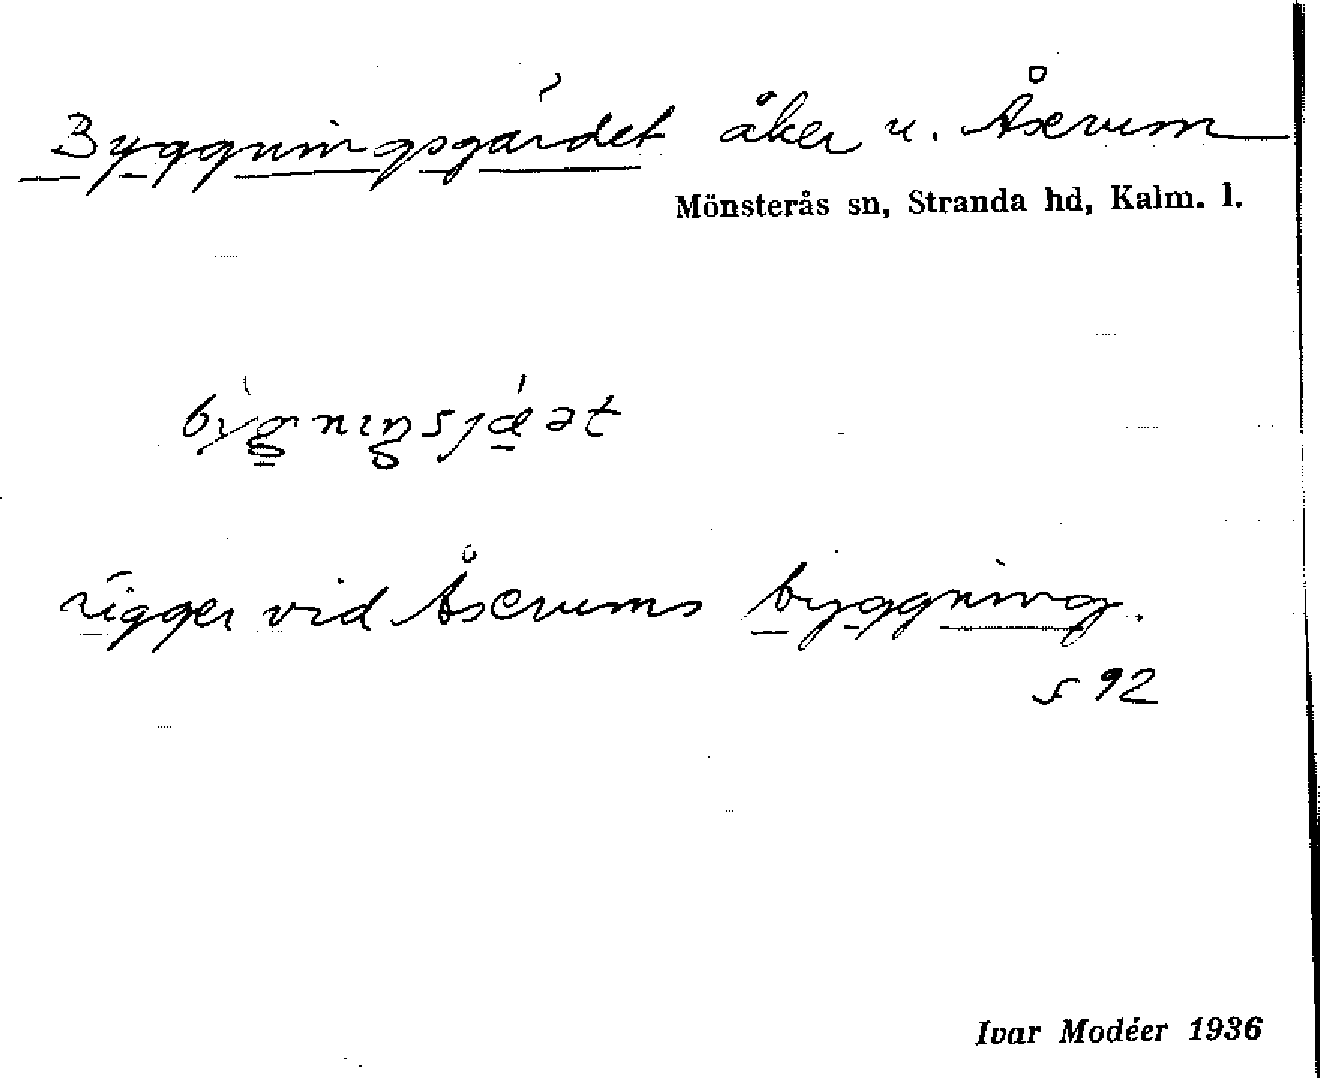 Byggningsgärdet åker u. Åserum
Mönsterås sn, Stranda hd, Kalm. l.
ligger vid Åserums byggning.
s 92
Ivar Modéer 1936